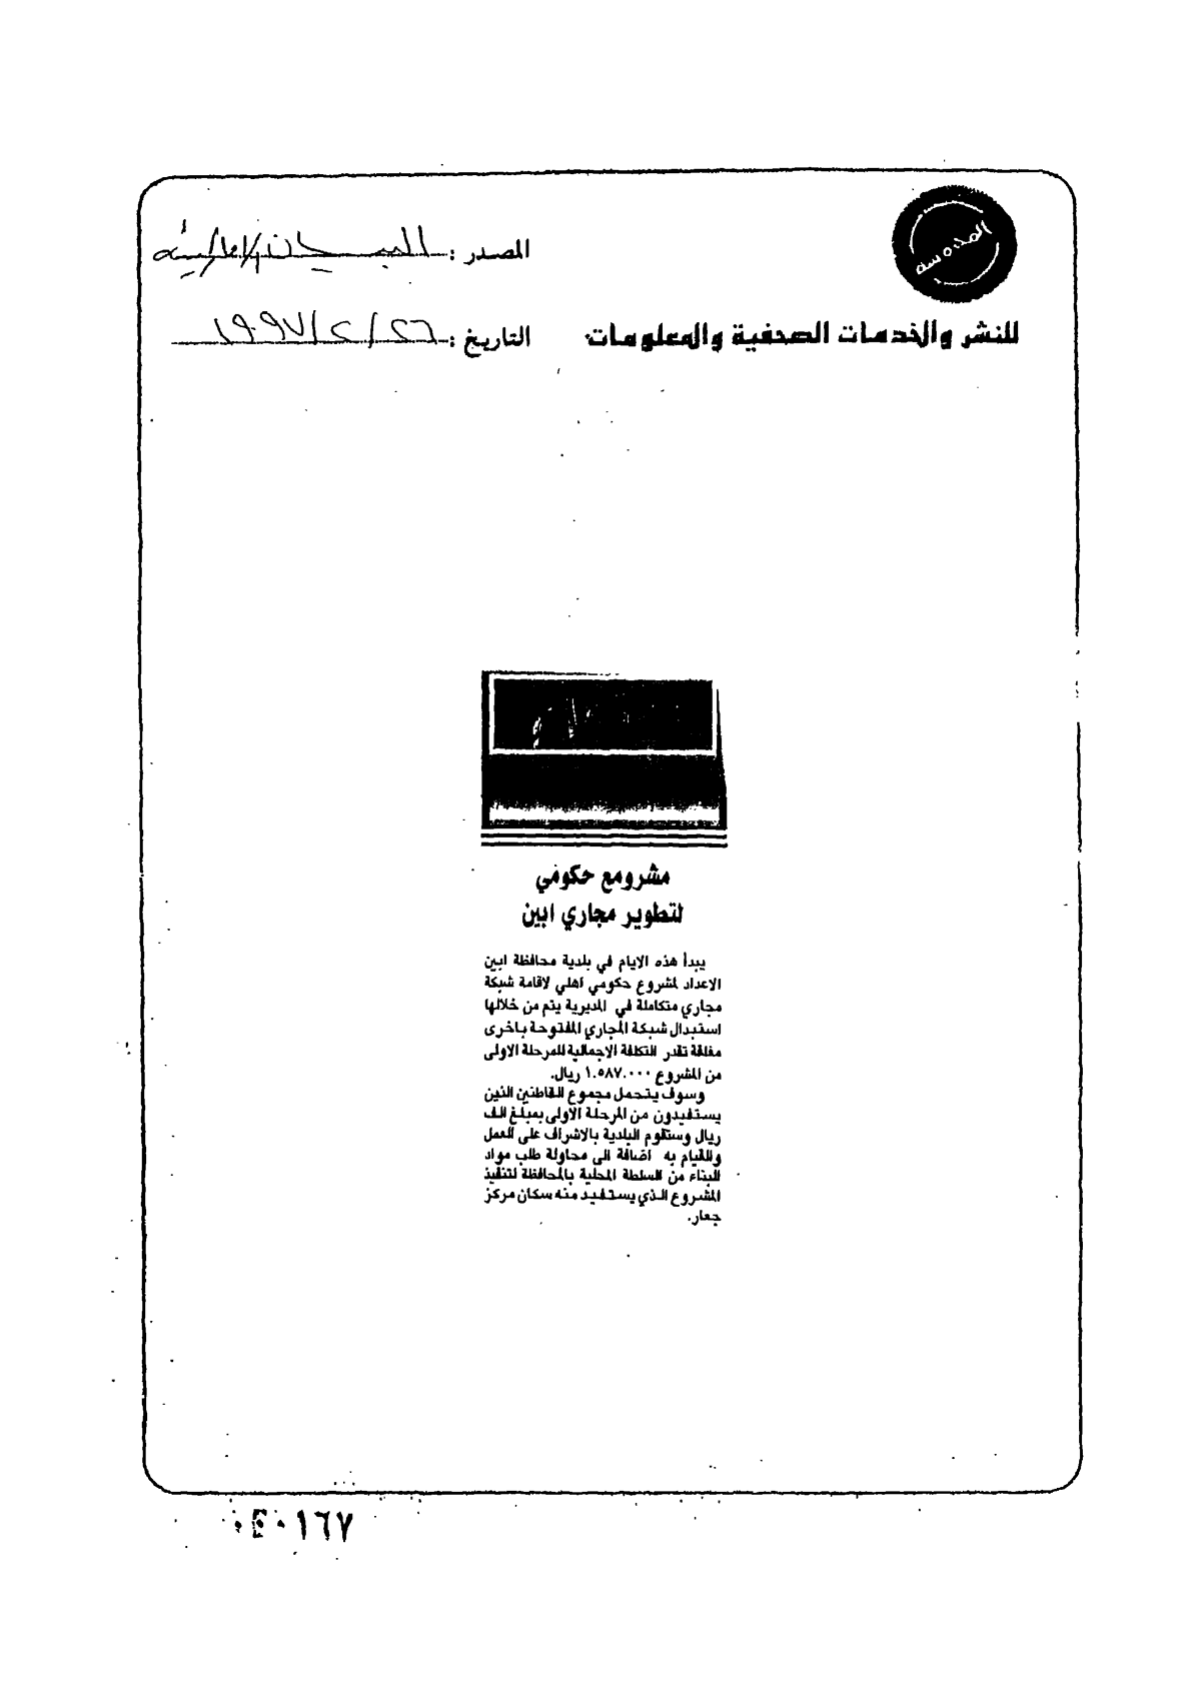 المصدر : البيان الاماراتية
للنشر والخدمات الصحفية والمعلومات
التاريخ : ٢٦ / ٢ / ١٩٩٧
مشرومع حكومي
لتطوير مجاري ابين
يبدأ هذه الايام في بلدية محافظة ابين
الاعداد لمشروع حكومي اهلي لاقامة شبكة
مجاري متكاملة في المديرية يتم من خلالها
استبدال شبكة المجاري المفتوحة باخرى
مغلقة تقدر التكلفة الاجمالية للمرحلة الاولى
من المشروع ١.٥٨٧.٠٠٠ ريال.
وسوف يتحمل مجموع القاطنين الذين
يستفيدون من المرحلة الاولى بمبلغ الف
ريال وستقوم البلدية بالاشراف على العمل
والقيام به اضافة الى محاولة طلب مواد
البناء من السلطة المحلية بالمحافظة لتنفيذ
المشروع الذي يستفيد منه سكان مركز
جعار.